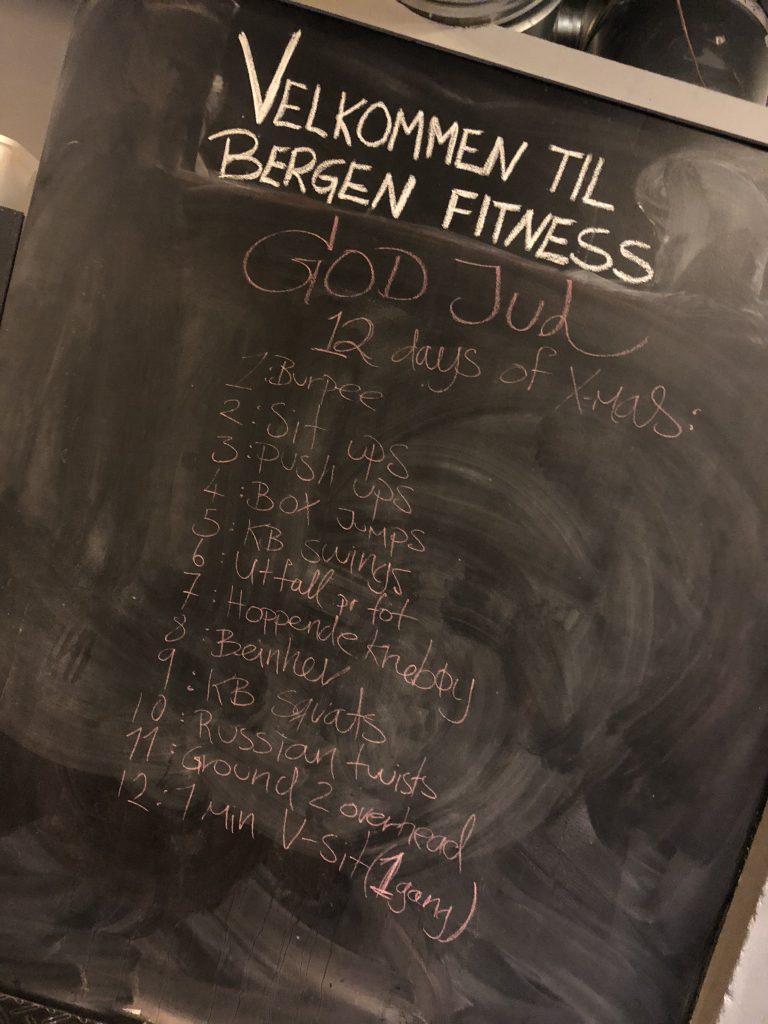 VELKOMMEN TIL
BERGEN FITNESS
GOD JUL
12 days of X-MAS:
1: Burpee
2: Sit ups
3: Push ups
4: Box Jumps
5: KB swings
6: Utfall pr fot
7: Hoppende knebøy
8: Beinhev
9: KB Squats
10: Russian twists
11: Ground 2 overhead
12: 1 Min V-Sit (1 gang)